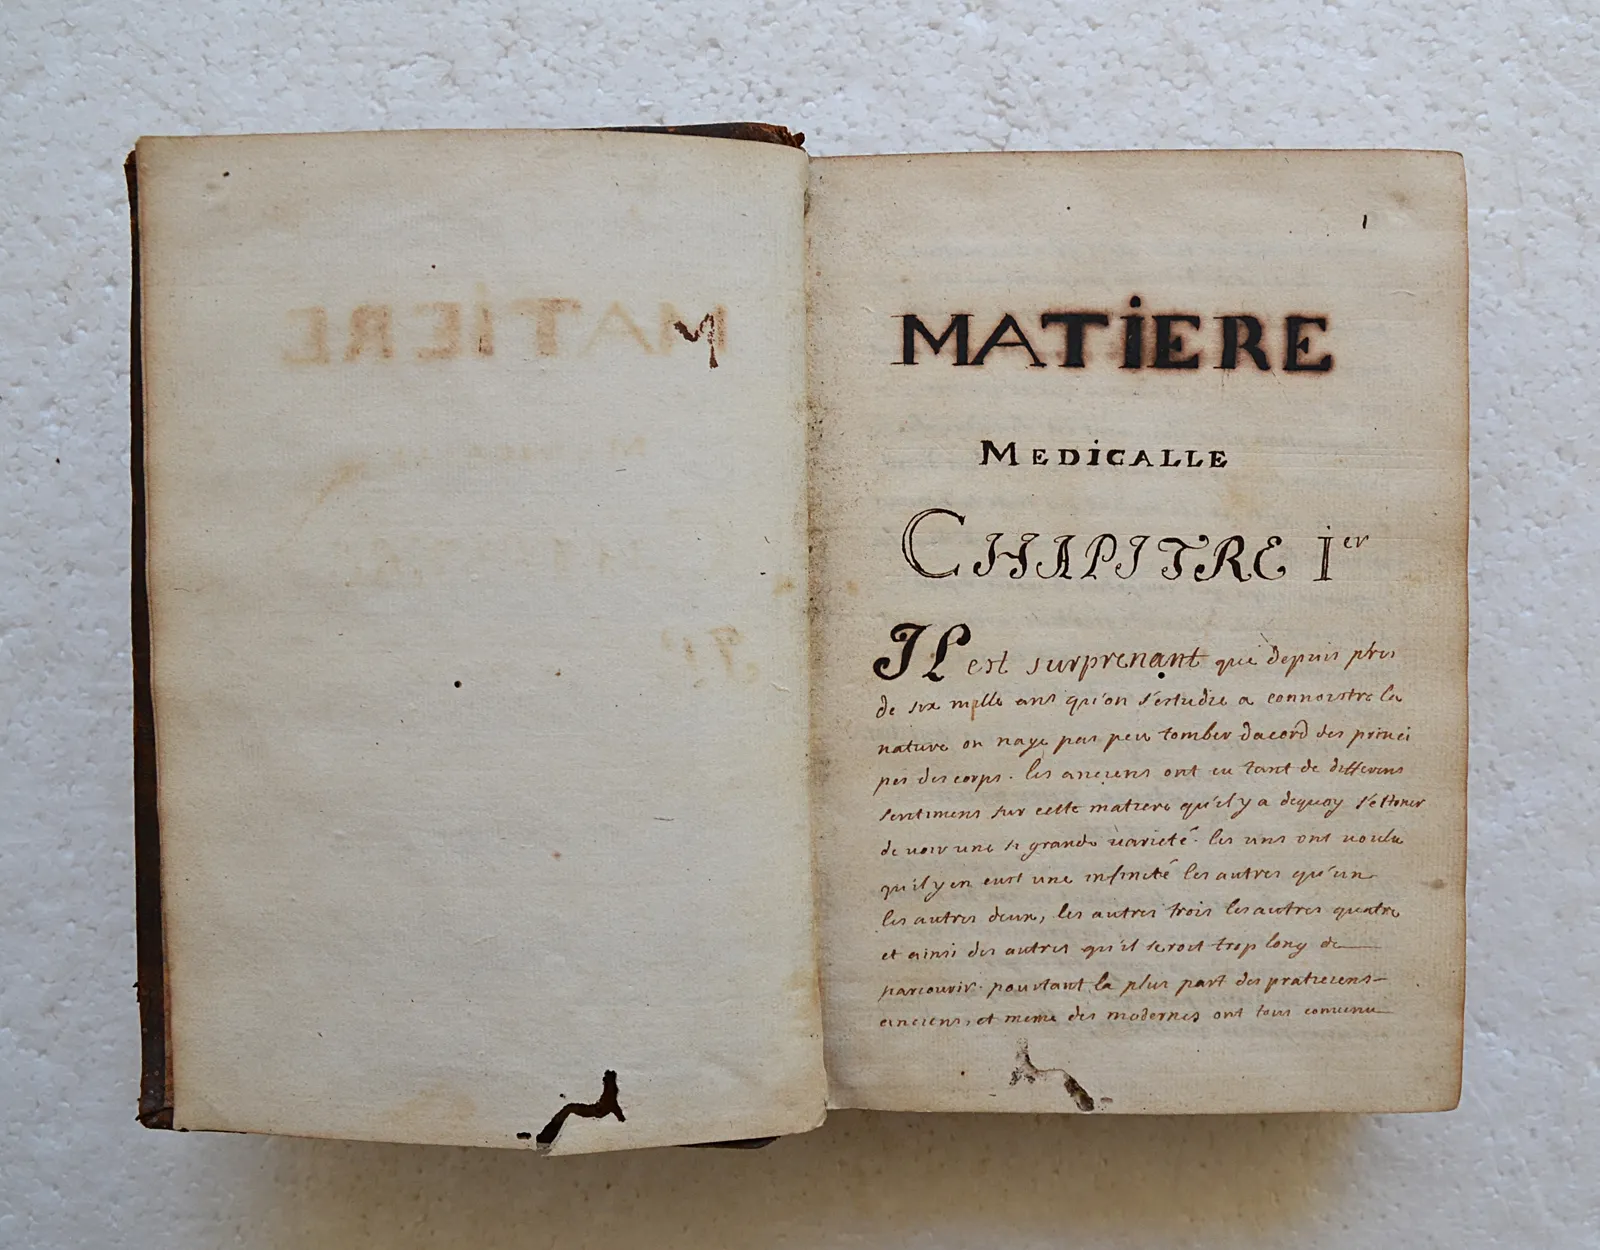 1
MATIERE
MEDICALLE
CHAPITRE Ier
IL est surprenant que depuis pres
de six mille ans qu'on s'estudie a connoistre la
nature on naye pas peu tomber dacord des princi
pes des corps. les anciens ont eu tant de differens
sentimens sur cette matiere qu'il y a dequoy s'estoner
de voir une si grande varieté. les uns ont voulu
qu'il y en eust une infinité les autres qu'un
les autres deux, les autres trois les autres quatre
et ainsi des autres qu'il seroit trop long de
parcourir. pourtant la plus part des praticiens
anciens, et meme des modernes ont tous convenu